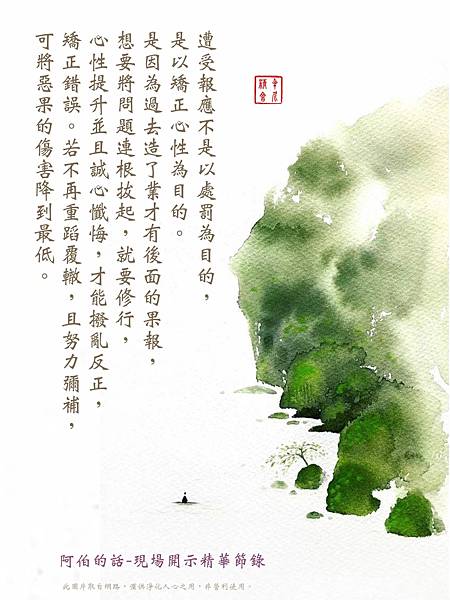 遭受報應不是以處罰為目的，
是以矯正心性為目的。
是因為過去造了業才有後面的果報，
想要將問題連根拔起，就要修行，
心性提升並且誠心懺悔，才能撥亂反正，
矯正錯誤。若不再重蹈覆轍，且努力彌補，
可將惡果的傷害降到最低。
阿伯的話-現場開示精華節錄
此圖片取自網路，僅供淨化人心之用，非營利使用。